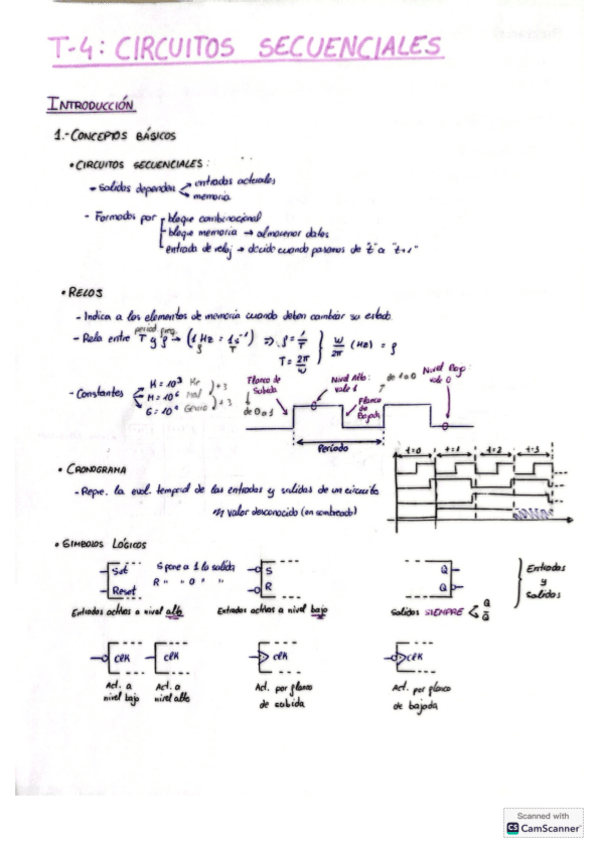 T-4: CIRCUITOS SECUENCIALES
INTRODUCCIÓN
1.- CONCEPTOS BÁSICOS
• CIRCUITOS SECUENCIALES:
- Salidas dependen entradas actuales
memoria
- Formados por bloque combinacional
bloque memoria → almacenar datos
entrada de reloj → decide cuando pasamos de "t" a "t+1"
• RELOJ
- Indica a los elementos de memoria cuando deben cambiar su estado
period freq.
- Rela entre T y f → (1 Hz = 1 s⁻¹) ⇒ f = 1/T
f T
T = 2π/w
w/2π (Hz) = f
- Constantes K = 10³
M = 10⁶
G = 10⁹
+3
+3
Flanco de Subida
de 0 a 1
Nivel Alto: vale 1
Flanco de Bajada
de 1 a 0
Nivel Bajo: vale 0
Período
• CRONOGRAMA
- Repre. la evol. temporal de las entradas y salidas de un circuito
valor desconocido (en sombreado)
t=0 t=1 t=2 t=3
• SIMBOLOS LÓGICOS
Set
Reset
S pone a 1 la salida
R " " 0 " "
Entradas activas a nivel alto
S
R
Entradas activas a nivel bajo
Q
Q
Salidas SIEMPRE Q
Q̅
Entradas y Salidas
CLK
Act. a nivel bajo
CLK
Act. a nivel alto
CLK
Act. por flanco de subida
CLK
Act. por flanco de bajada
Scanned with
CS CamScanner